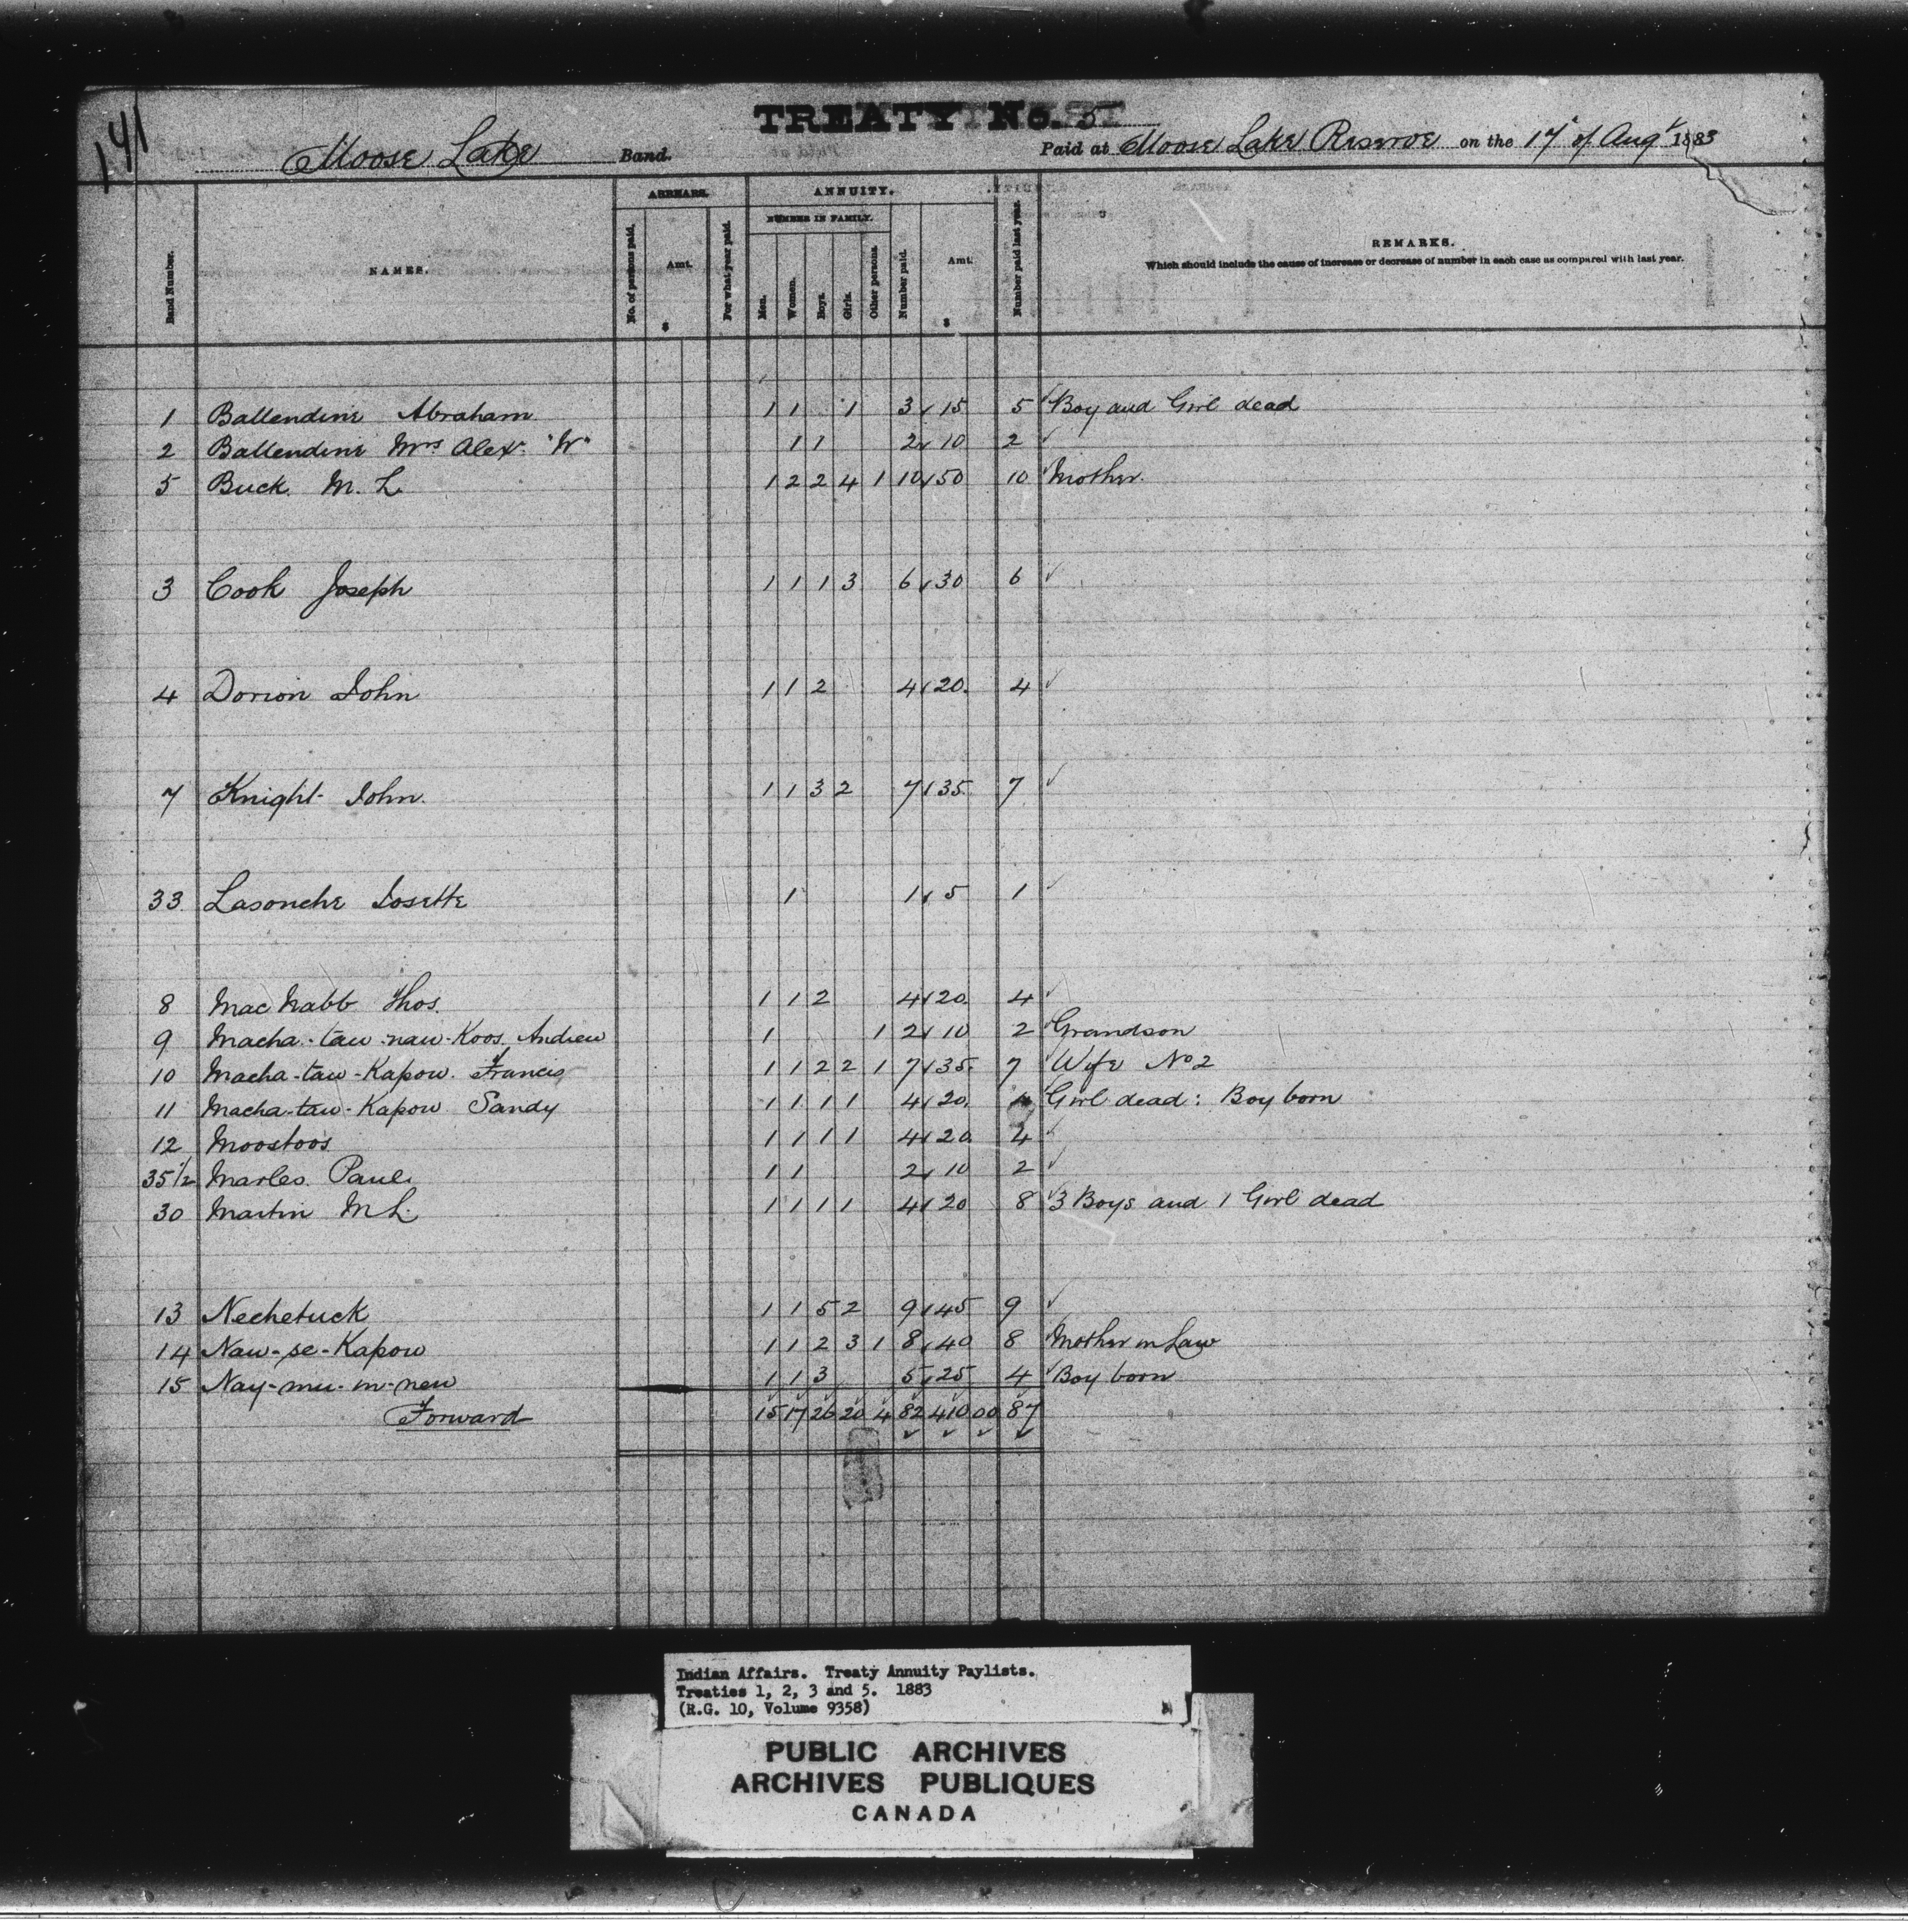 141
TREATY No. 5
Moose Lake Band.
Paid at Moose Lake Reserve on the 17th of Augt 1883
Band Number.
NAMES.
ARREARS.
No. of persons paid.
Amt.
$
For what year paid.
ANNUITY.
NUMBER IN FAMILY.
Men.
Women.
Boys.
Girls.
Other persons.
Number paid.
Amt.
$
Number paid last year.
REMARKS.
Which should include the cause of increase or decrease of number in each case as compared with last year.
1 Ballendine Abraham 1 1 1 3 15 5 Boy and Girl dead
2 Ballendine Mrs Alex. "W" 1 1 2 10 2
5 Buck M. L. 1 2 2 4 1 10 50 10 Mother
3 Cook Joseph 1 1 1 3 6 30 6
4 Dorion John 1 1 2 4 20. 4
7 Knight John. 1 1 3 2 7 35 7
33 Lasonche Josette 1 1 5 1
8 Mac Nabb Thos. 1 1 2 4 20. 4
9 Macha-taw-naw-Koos Andrew 1 1 2 10 2 Grandson
10 Macha-taw-Kapow. Francis 1 1 2 2 1 7 35. 7 Wife No 2
11 Macha-taw-Kapow Sandy 1 1 1 1 4 20. 4 Girl dead: Boy born
12 Moostoos 1 1 1 1 4 20 4
35 1/2 Marles Paul. 1 1 2 10 2
30 Martin M L. 1 1 1 1 4 20 8 3 Boys and 1 Girl dead
13 Nechetuck 1 1 5 2 9 45 9
14 Naw-se-Kapow 1 1 2 3 1 8 40 8 Mother in Law
15 Nay-mu-in-new 1 1 3 5 25 4 Boy born
Forward 15 17 26 20 4 82 410 00 87
Indian Affairs. Treaty Annuity Paylists.
Treaties 1, 2, 3 and 5. 1883
(R.G. 10, Volume 9358)
PUBLIC ARCHIVES
ARCHIVES PUBLIQUES
CANADA